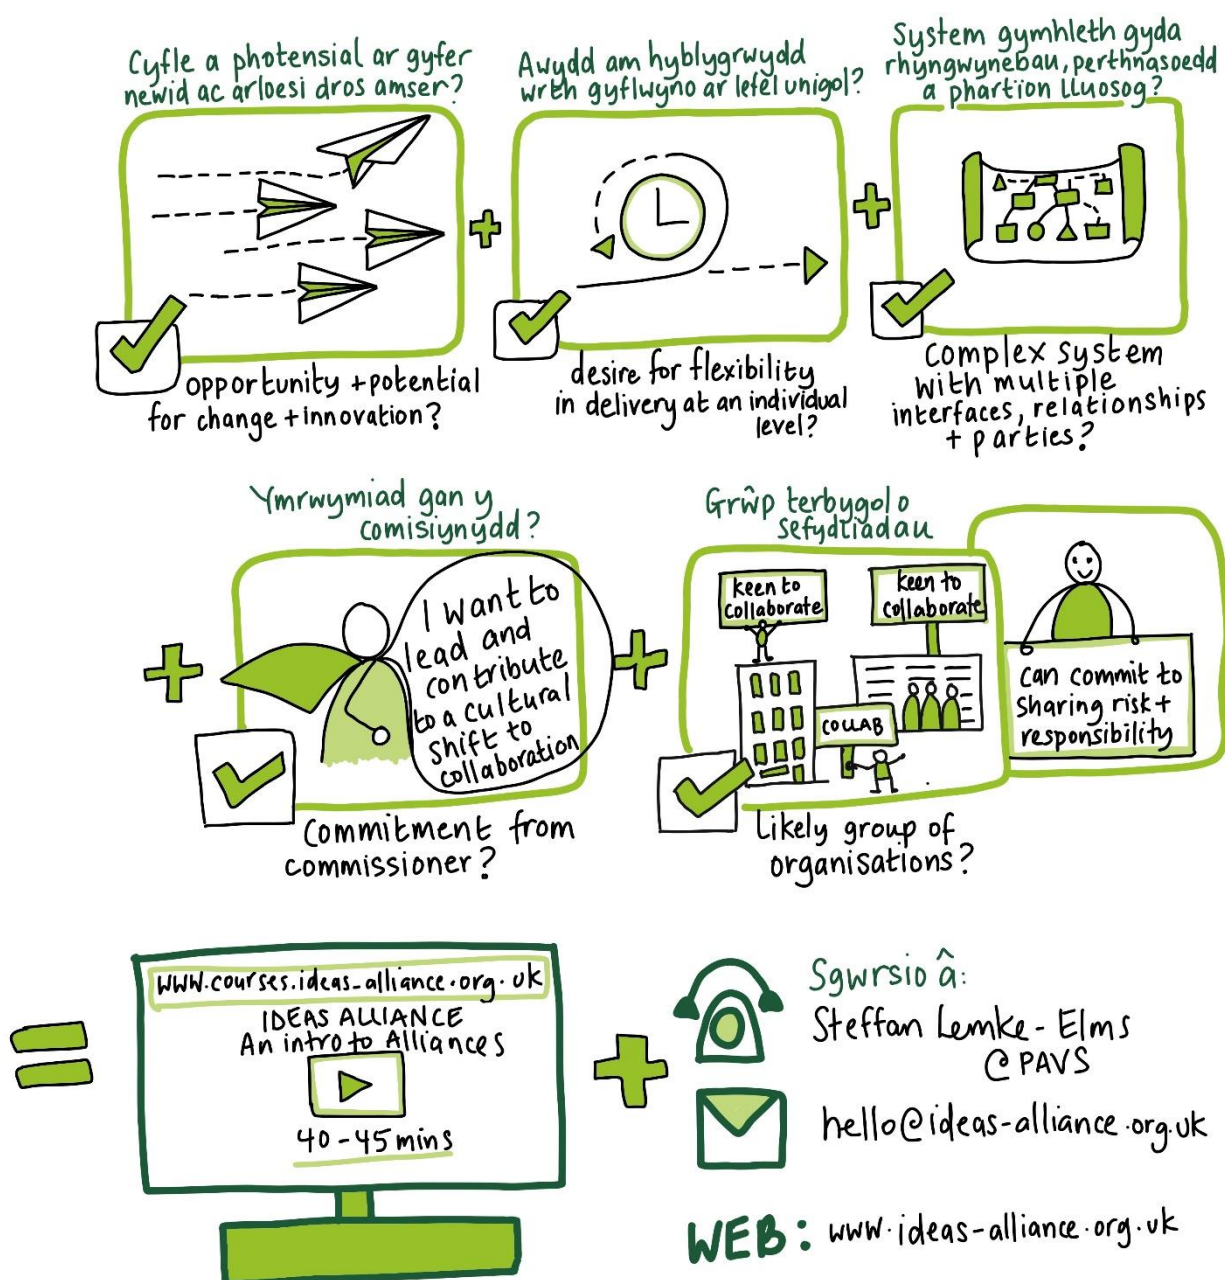 Cyfle a photensial ar gyfer
newid ac arloesi dros amser?
opportunity + potential
for change + innovation?
Awydd am hyblygrwydd
wrth gyflwyno ar lefel unigol?
desire for flexibility
in delivery at an individual
level?
System gymhleth gyda
rhyngwynebau, perthnasoedd
a phartïon lluosog?
Complex system
with multiple
interfaces, relationships
+ parties?
Ymrwymiad gan y
comisiynydd?
I want to
lead and
contribute
to a cultural
shift to
collaboration
Commitment from
commissioner?
Grŵp terbygol o
sefydliadau
keen to
collaborate
keen to
collaborate
COLLAB
can commit to
sharing risk +
responsibility
Likely group of
organisations?
www.courses.ideas-alliance.org.uk
IDEAS ALLIANCE
An intro to Alliances
40-45 mins
Sgwrsio â:
Steffan Lemke-Elms
@PAVS
hello@ideas-alliance.org.uk
WEB: www.ideas-alliance.org.uk